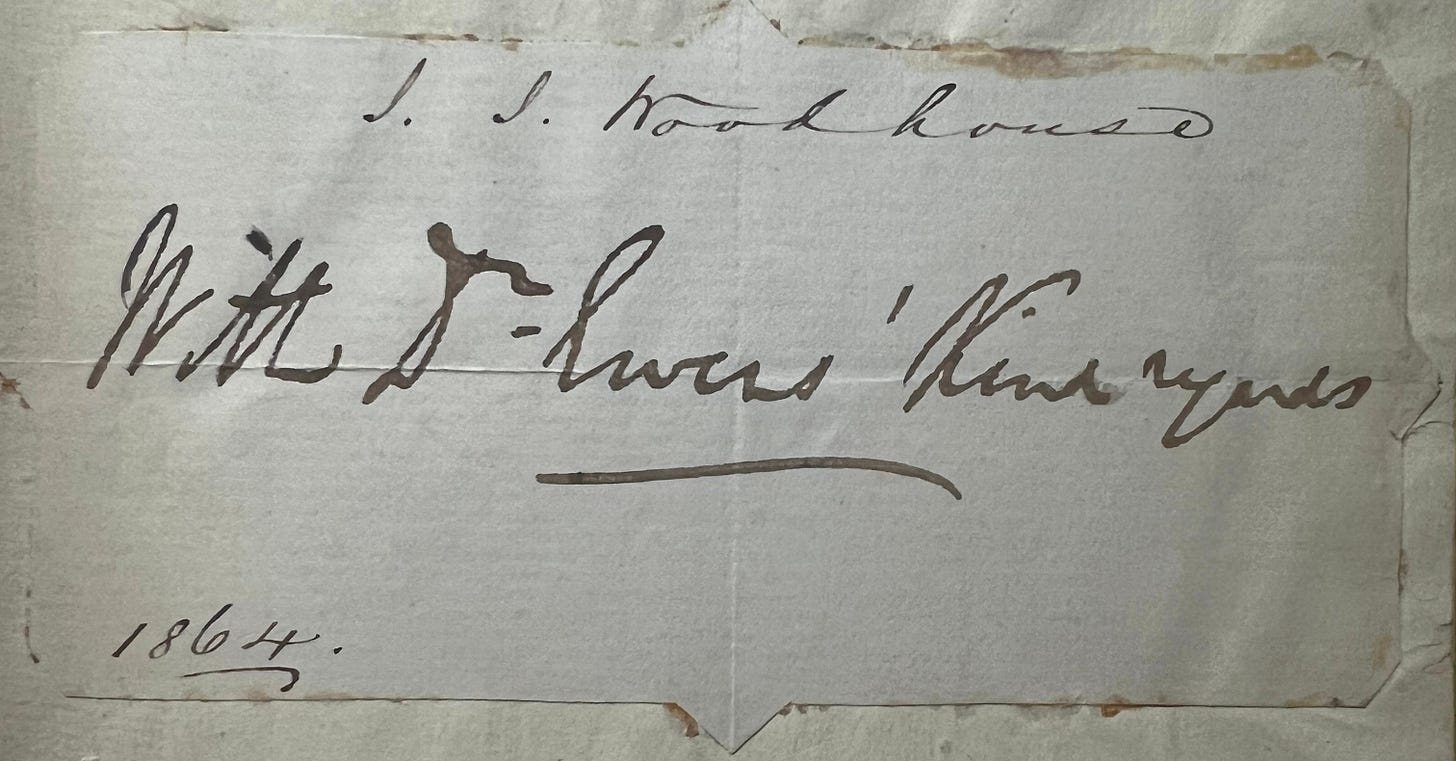 Woodhouse
With Dr- Kind regards
1864.